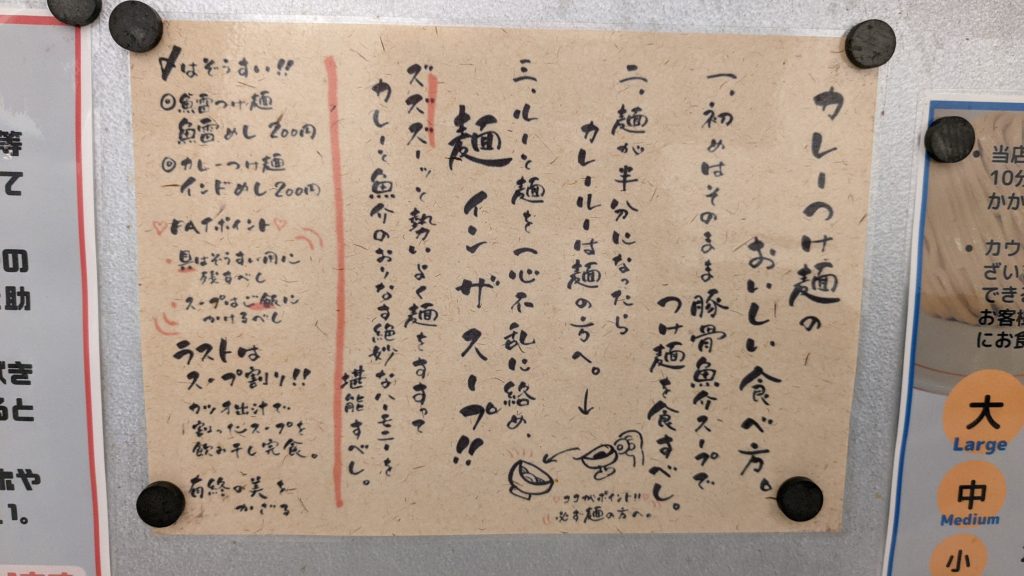 カレーつけ麺の
おいしい食べ方。
一、初めはそのまま豚骨魚介スープで
つけ麺を食すべし。
二、麺が半分になったら
カレールーは麺の方へ。↓
ココがポイント!!
必ず麺の方へ。
三、ルーと麺を一心不乱に絡め、
麺インザスープ!!
ズズズズーッと勢いよく麺をすすって
カレーと魚介のおりなす絶妙なハーモニーを
堪能すべし。
〆はぞうすい!!
◎魚雷つけ麺
魚雷めし200円
◎カレーつけ麺
インドめし200円
♡FAIポイント♡
・具はぞうすい用に
残すべし
・スープはご飯に
かけるべし
ラストは
スープ割り!!
カツオ出汁で
割ったスープを
飲み干し完食。
有終の美を
かざる
等
て
の
助
き
ると
や
当店
10分
かか
カウ
ざい
でき
お客様
にお食
大
Large
中
Medium
小